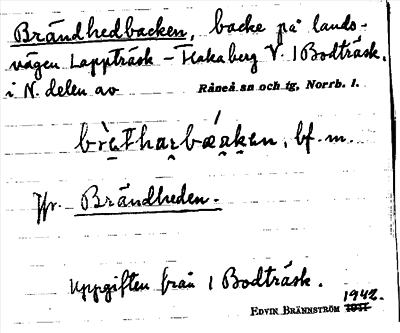 Brändhedbacken, backe på lands-
vägen Lappträsk - Hakaberg V. 1 Bodträsk,
i N. delen av Råneå sn och tg, Norrb. l.
brètharbáken, bf. m.
Jfr. Brändheden.
Uppgiften från 1 Bodträsk.
1942.
EDVIN BRÄNNSTRÖM